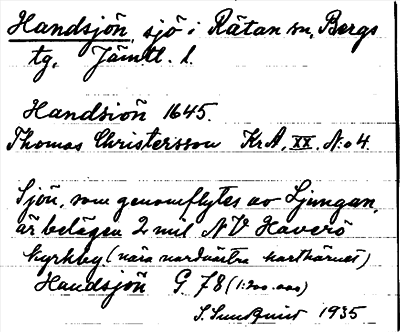 Handsjön, sjö i Rätan sn, Bergs
tg, Jämtl. l.
Handsiön 1645.
Thomas Christersson KrA, XX. N:o 4.
Sjön, som genomflytes av Ljungan,
är belägen 2 mil NV Haverö
kyrkby (nära nordvästra karthörnet)
Handsjön G. 78 (1:200.000)
S. Sundquist 1935